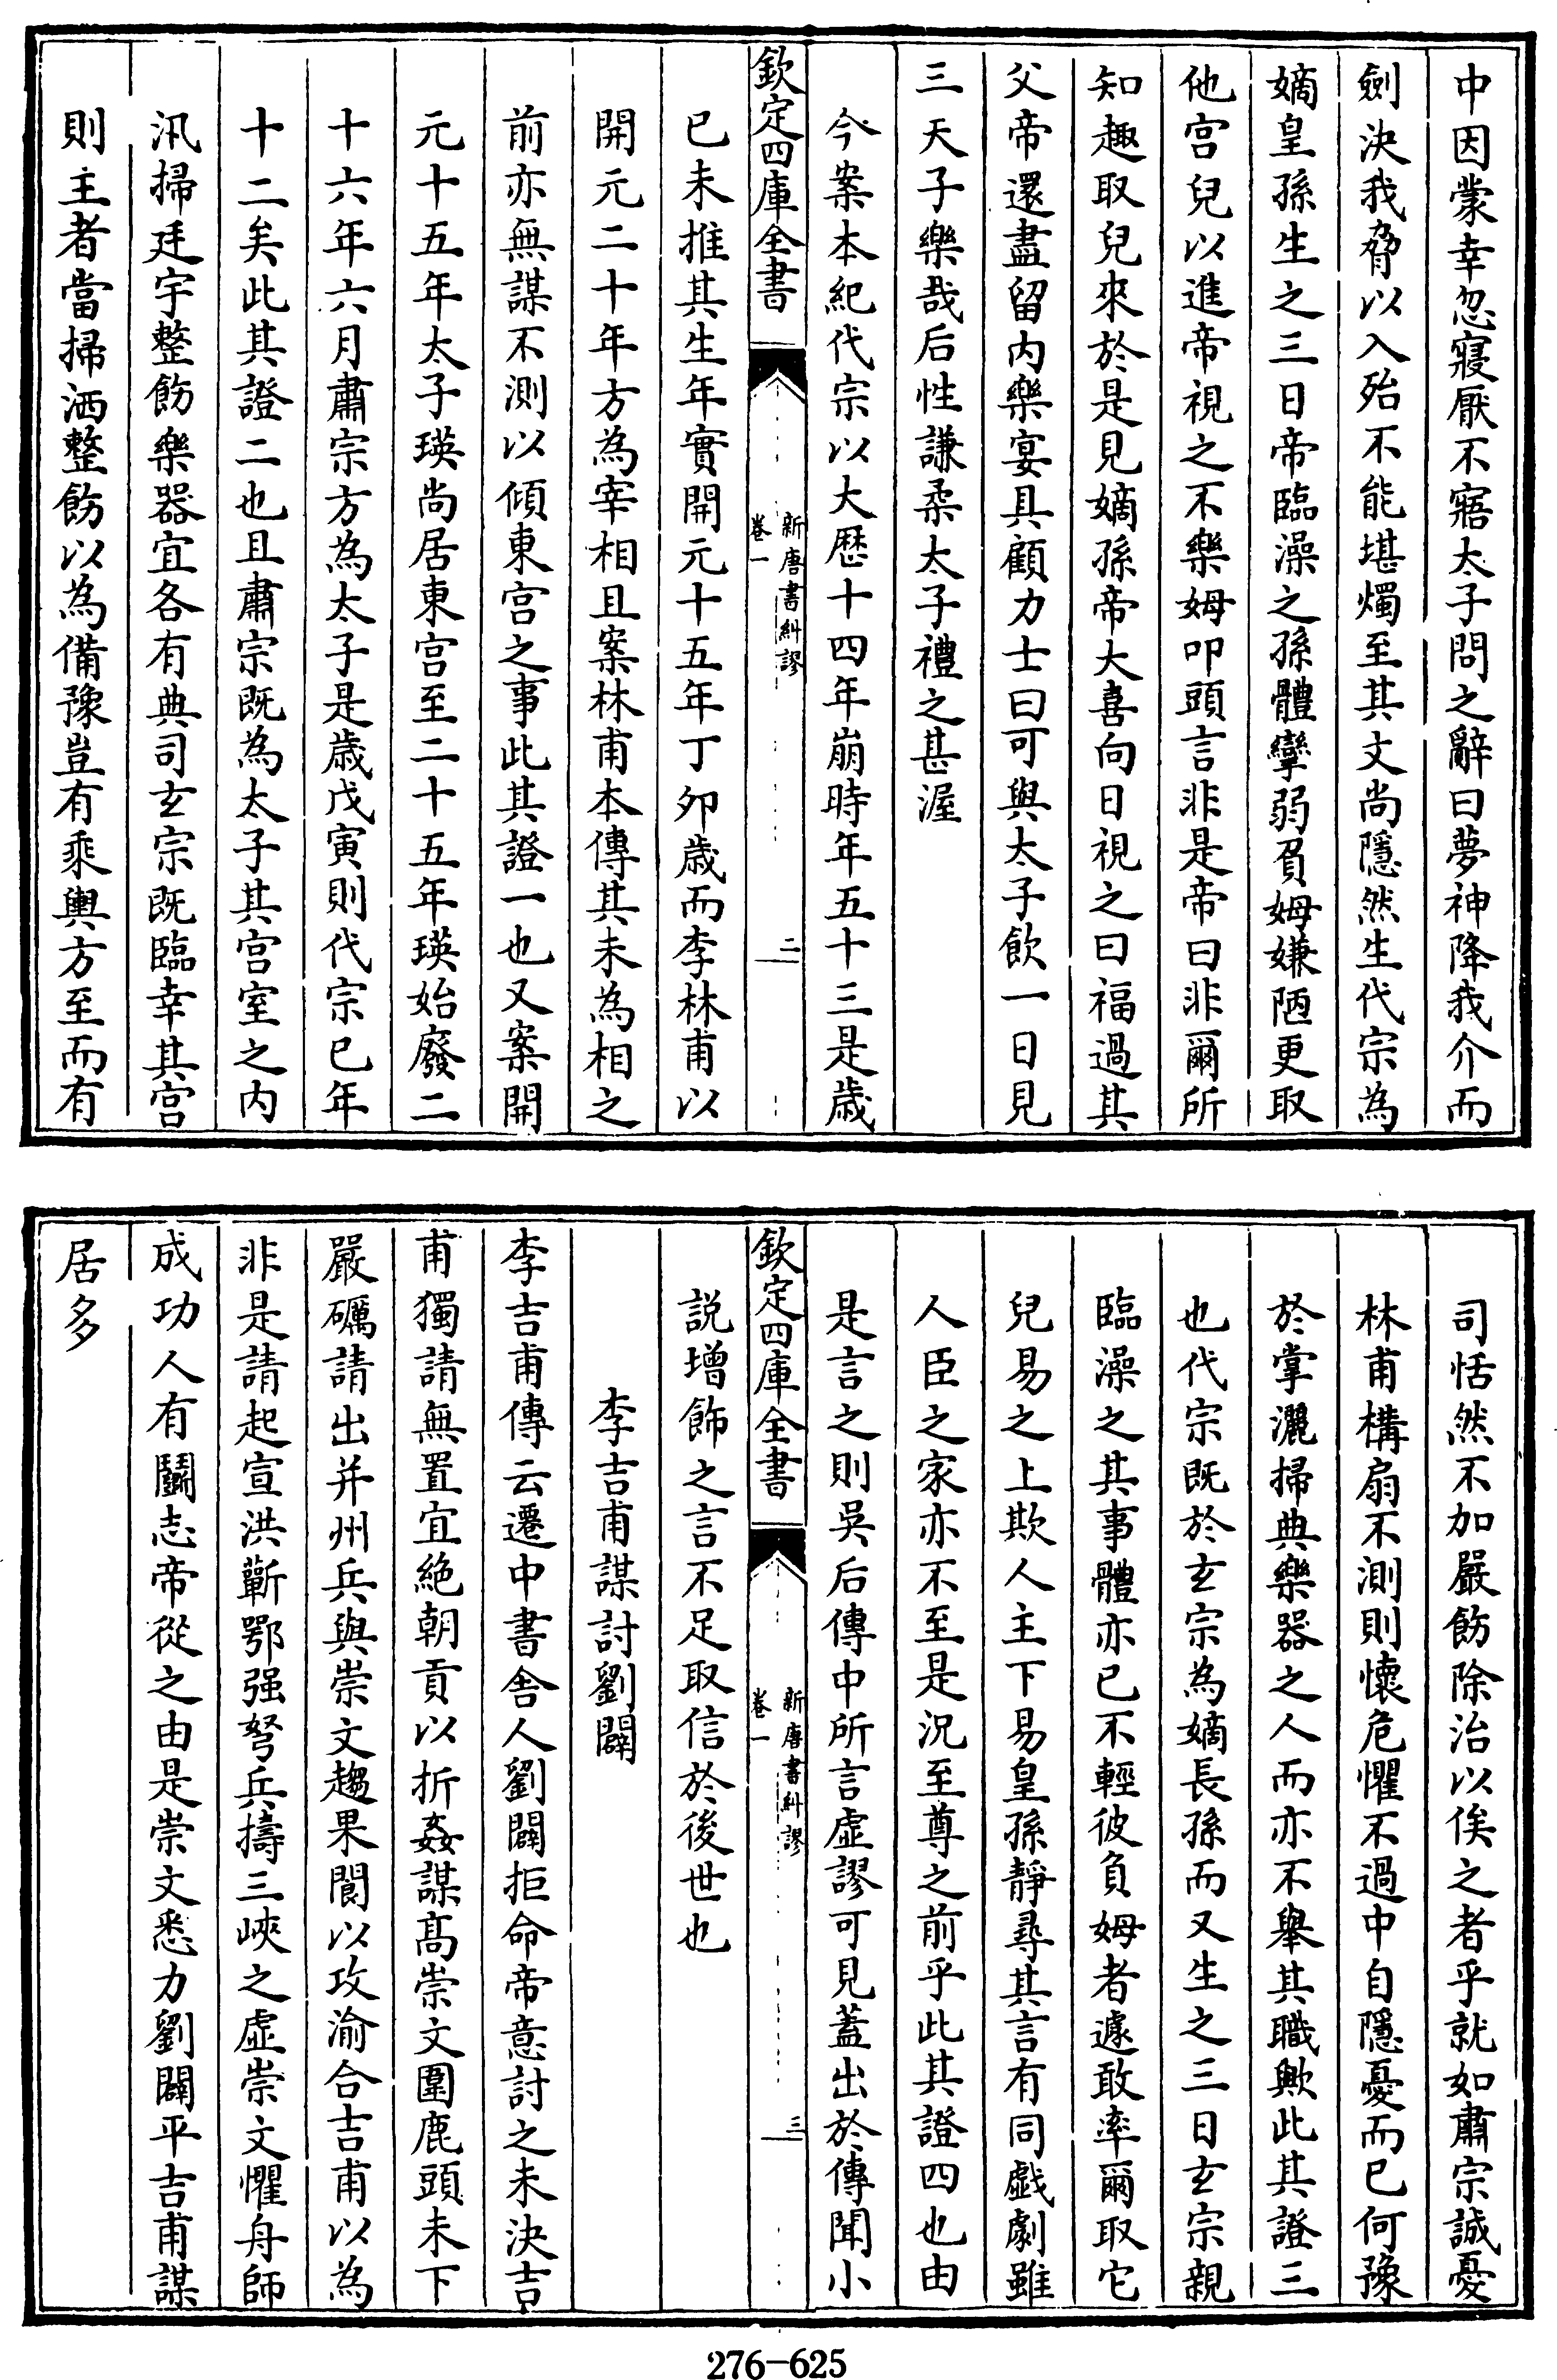 中因蒙幸忽寢厭不寤太子問之辭曰夢神降我介而
劍決我脅以入殆不能堪燭至其文尚隱然生代宗為
嫡皇孫生之三日帝臨澡之孫體攣弱負姆嫌陋更取
他宫兒以進帝視之不樂姆叩頭言非是帝曰非爾所
知趣取兒來於是見嫡孫帝大喜向日視之曰福過其
父帝還盡留内樂宴具顧力士曰可與太子飲一日見
三天子樂哉后性謙柔太子禮之甚渥
今案本紀代宗以大歴十四年崩時年五十三是歳
欽定四庫全書
新唐書糾謬
卷一
二
已未推其生年實開元十五年丁夘歳而李林甫以
開元二十年方為宰相且案林甫本傳其未為相之
前亦無謀不測以傾東宫之事此其證一也又案開
元十五年太子瑛尚居東宫至二十五年瑛始廢二
十六年六月肅宗方為太子是歳戊寅則代宗已年
十二矣此其證二也且肅宗既為太子其宫室之内
汛掃廷宇整飭樂器宜各有典司玄宗既臨幸其宫
則主者當掃洒整飭以為備豫豈有乘輿方至而有
司恬然不加嚴飭除治以俟之者乎就如肅宗誠憂
林甫構扇不測則懷危懼不過中自隱憂而已何豫
於掌灑掃典樂器之人而亦不舉其職歟此其證三
也代宗既於玄宗為嫡長孫而又生之三日玄宗親
臨澡之其事體亦已不輕彼負姆者遽敢率爾取它
兒易之上欺人主下易皇孫靜尋其言有同戯劇雖
人臣之家亦不至是況至尊之前乎此其證四也由
是言之則吳后傳中所言虛謬可見蓋出於傳聞小
欽定四庫全書
新唐書糾謬
卷一
三
説增飾之言不足取信於後世也
李吉甫謀討劉闢
李吉甫傳云遷中書舍人劉闢拒命帝意討之未決吉
甫獨請無置宜絶朝貢以折姦謀髙崇文圍鹿頭未下
嚴礪請出并州兵與崇文趨果閬以攻渝合吉甫以為
非是請起宣洪蘄鄂强弩兵擣三峽之虛崇文懼舟師
成功人有鬭志帝從之由是崇文悉力劉闢平吉甫謀
居多
276-625